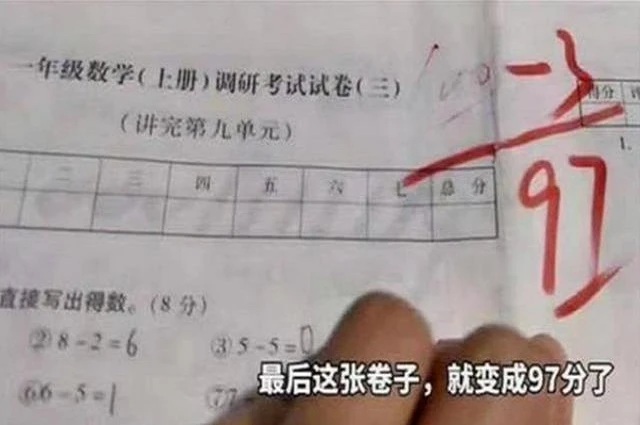 一年级数学(上册)调研考试试卷(三)
-3
得分
(讲完第九单元)
97
1.
二 三 四 五 六 七 总分
直接写出得数。(8分)
②8-2=6 ③5-5=0
⑥6-5=1 ⑦7
最后这张卷子，就变成97分了